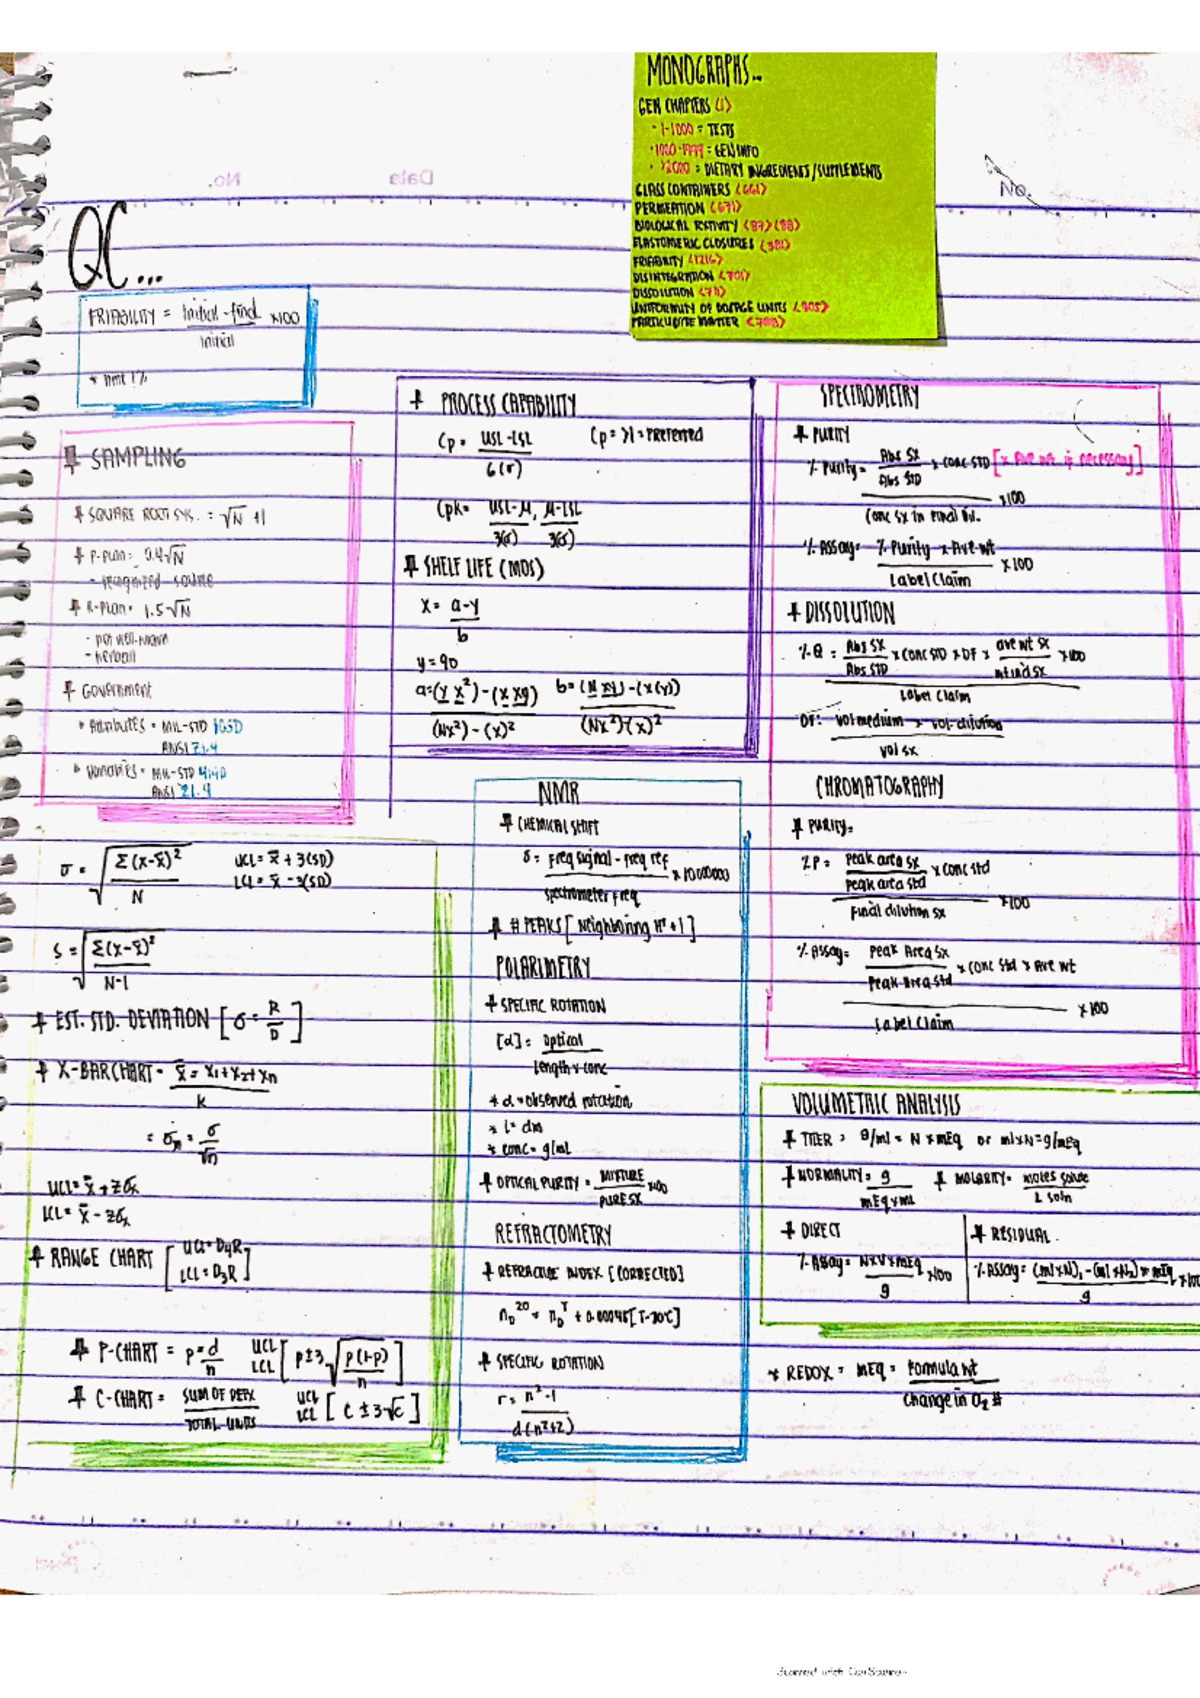 MONOGRAPHS...
GEN CHAPTERS <1>
- 1-1000 = TESTS
· 1000-1999 = GEN INFO
· >2000 = DIETARY INGREDIENTS/SUPPLEMENTS
GLASS CONTAINERS <661>
PERMEATION <671>
BIOLOGICAL RXTIVITY <87> <88>
ELASTOMERIC CLOSURES <381>
FRIABILITY <1216>
DISINTEGRATION <701>
DISSOLUTION <711>
UNIFORMITY OF DOSAGE UNITS <905>
PARTICULATE MATTER <788>
No.
Data
No.
QC...
FRIABILITY = initial - final x100
initial
* nmt 1%
SAMPLING
SQUARE ROOT SYS. = √N +1
P-plan = 0.4√N
- recognized source
R-Plan = 1.5√N
- not well-known
- herbal
Government
Attributes = MIL-STD 105D
ANSI Z1.4
Variables = MIL-STD 414D
ANSI Z1.9
PROCESS CAPABILITY
Cp = USL-LSL
6(σ)
Cp = >1 = PREFERRED
Cpk = USL-μ, μ-LSL
3(σ) 3(σ)
SHELF LIFE (MOS)
x = a-y
b
y = 90
a=(y x²)-(x xy) b=(N xy)-(x(y))
(Nx²)-(x)² (Nx²)-(x)²
SPECTROMETRY
PURITY
% Purity = Abs SX x CONC STD [x Ave wt if necessary]
Abs STD
x100
Conc SX in Final Dil.
% Assay = % Purity x Ave wt x100
Label Claim
DISSOLUTION
% Q = Abs SX x CONC STD x DF x ave wt SX x100
Abs STD wt ind SX
Label Claim
DF: vol medium x vol dilution
Vol SX
CHROMATOGRAPHY
PURITY=
%P = Peak area SX x Conc std
Peak area std
x100
Final dilution SX
% Assay = Peak Area SX x Conc Std x Ave wt
Peak Area Std
x100
Label Claim
σ = √Σ(x-x̄)²
N
UCL = x̄ + 3(SD)
LCL = x̄ - 3(SD)
S = √Σ(x-x̄)²
N-1
EST. STD. DEVIATION [σ = R/D]
X-BAR CHART = x̄ = x₁+x₂+xn
k
= σm = σ
√n
UCL = x̄ + Zσx
LCL = x̄ - Zσx
RANGE CHART [UCL = D₄R
LCL = D₃R]
P-CHART = p = d/n UCL LCL [p ± 3 √p(1-p)/n]
C-CHART = SUM OF DEFX UCL
TOTAL UNITS LCL [C ± 3√C]
NMR
CHEMICAL SHIFT
δ = Freq signal - Freq ref x1000000
spectrometer freq
# PEAKS [Neighboring H⁺ + 1]
POLARIMETRY
SPECIFIC ROTATION
[α] = Optical
Length x conc
* α = observed rotation
* l = dm
* conc = g/mL
OPTICAL PURITY = MIXTURE x100
PURE SX
REFRACTOMETRY
REFRACTIVE INDEX [CORRECTED]
nD²⁰ = nDᵀ + 0.00045[T-20℃]
SPECIFIC ROTATION
r = n²-1
d(n²+2)
VOLUMETRIC ANALYSIS
TITER = g/ml = N x mEq or ml x N = g/mEq
NORMALITY = g MOLARITY = moles solute
mEq x mL L soln
DIRECT
% Assay = N x V x mEq x100
g
RESIDUAL
% Assay = (ml x N)₁ - (ml x N₂) x mEq x100
g
* REDOX = mEq = Formula wt
Change in O₂ #
Scanned with CamScanner